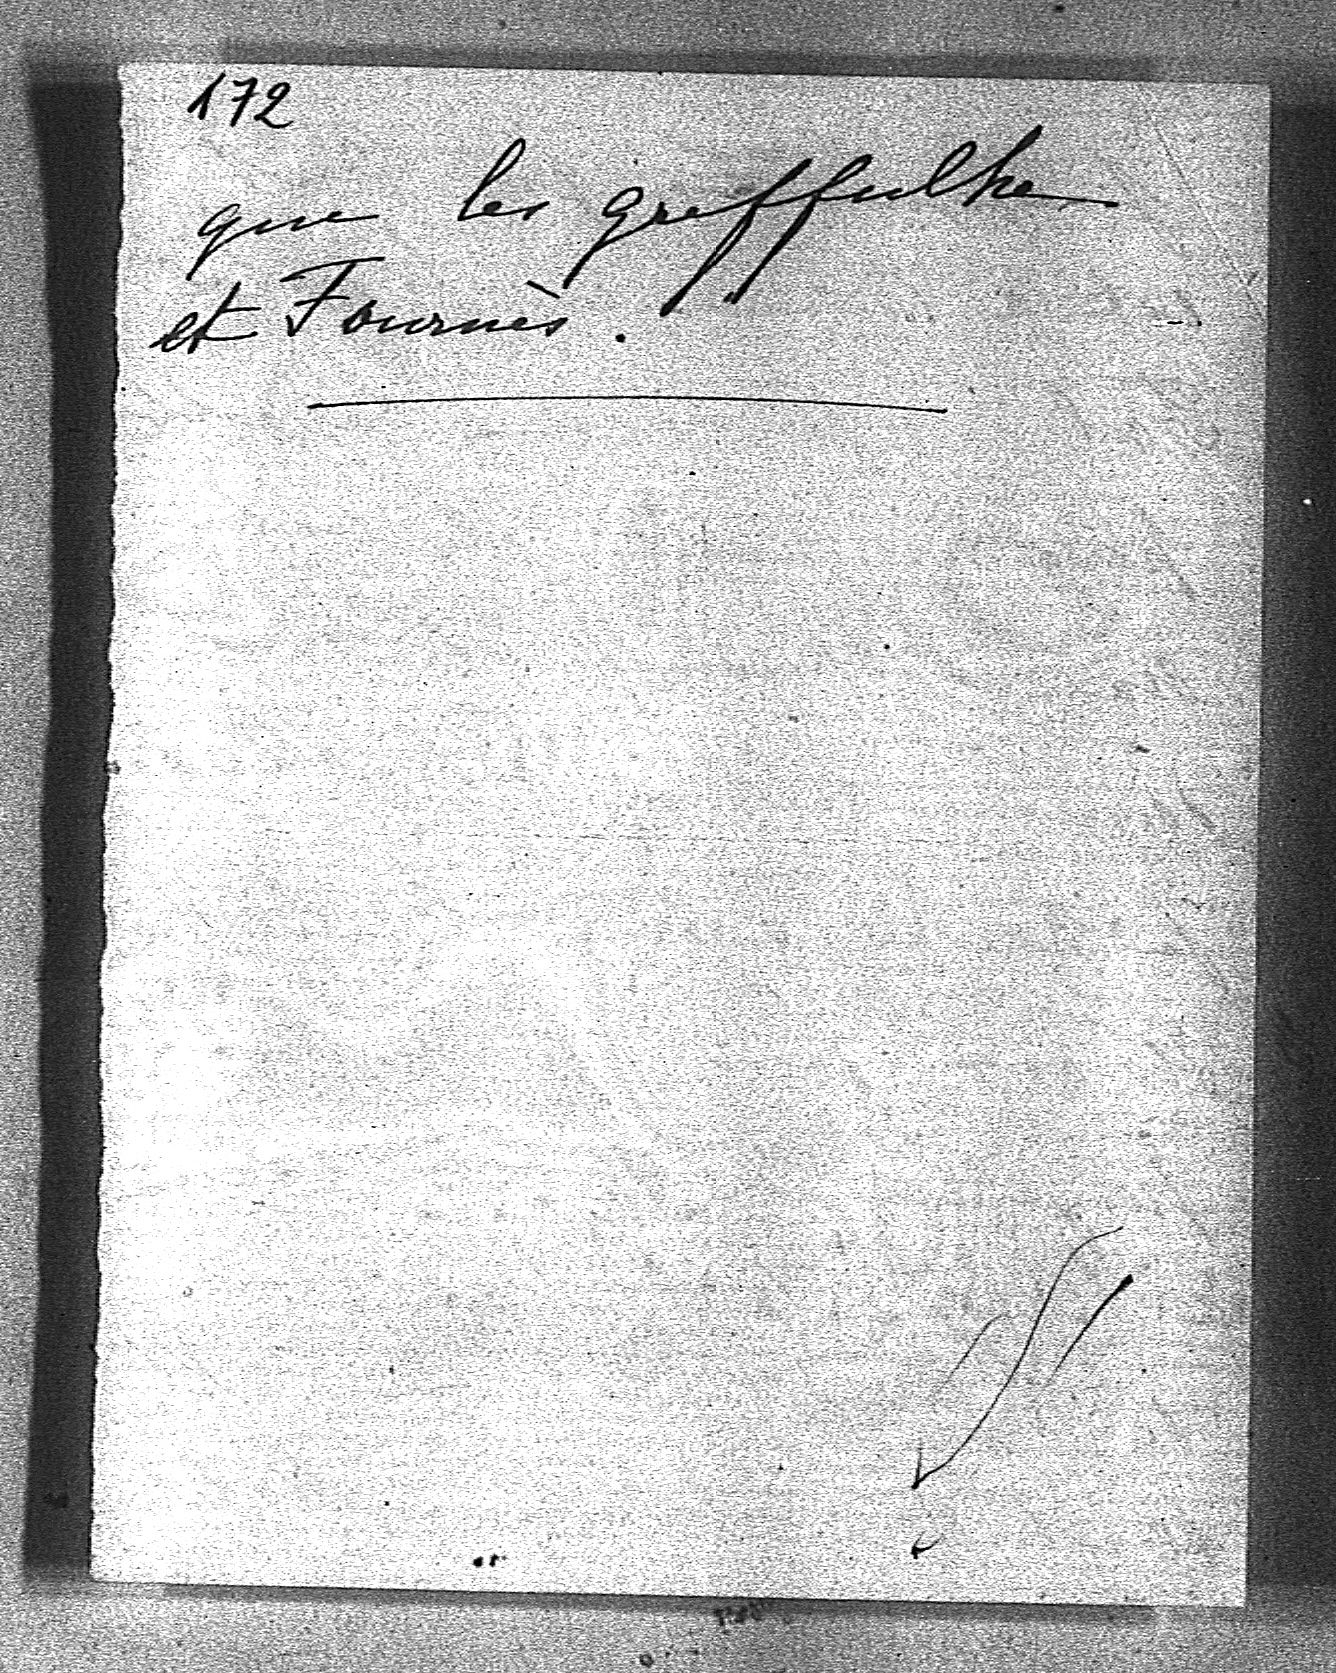 172
que les greffulhe
et Fournès.